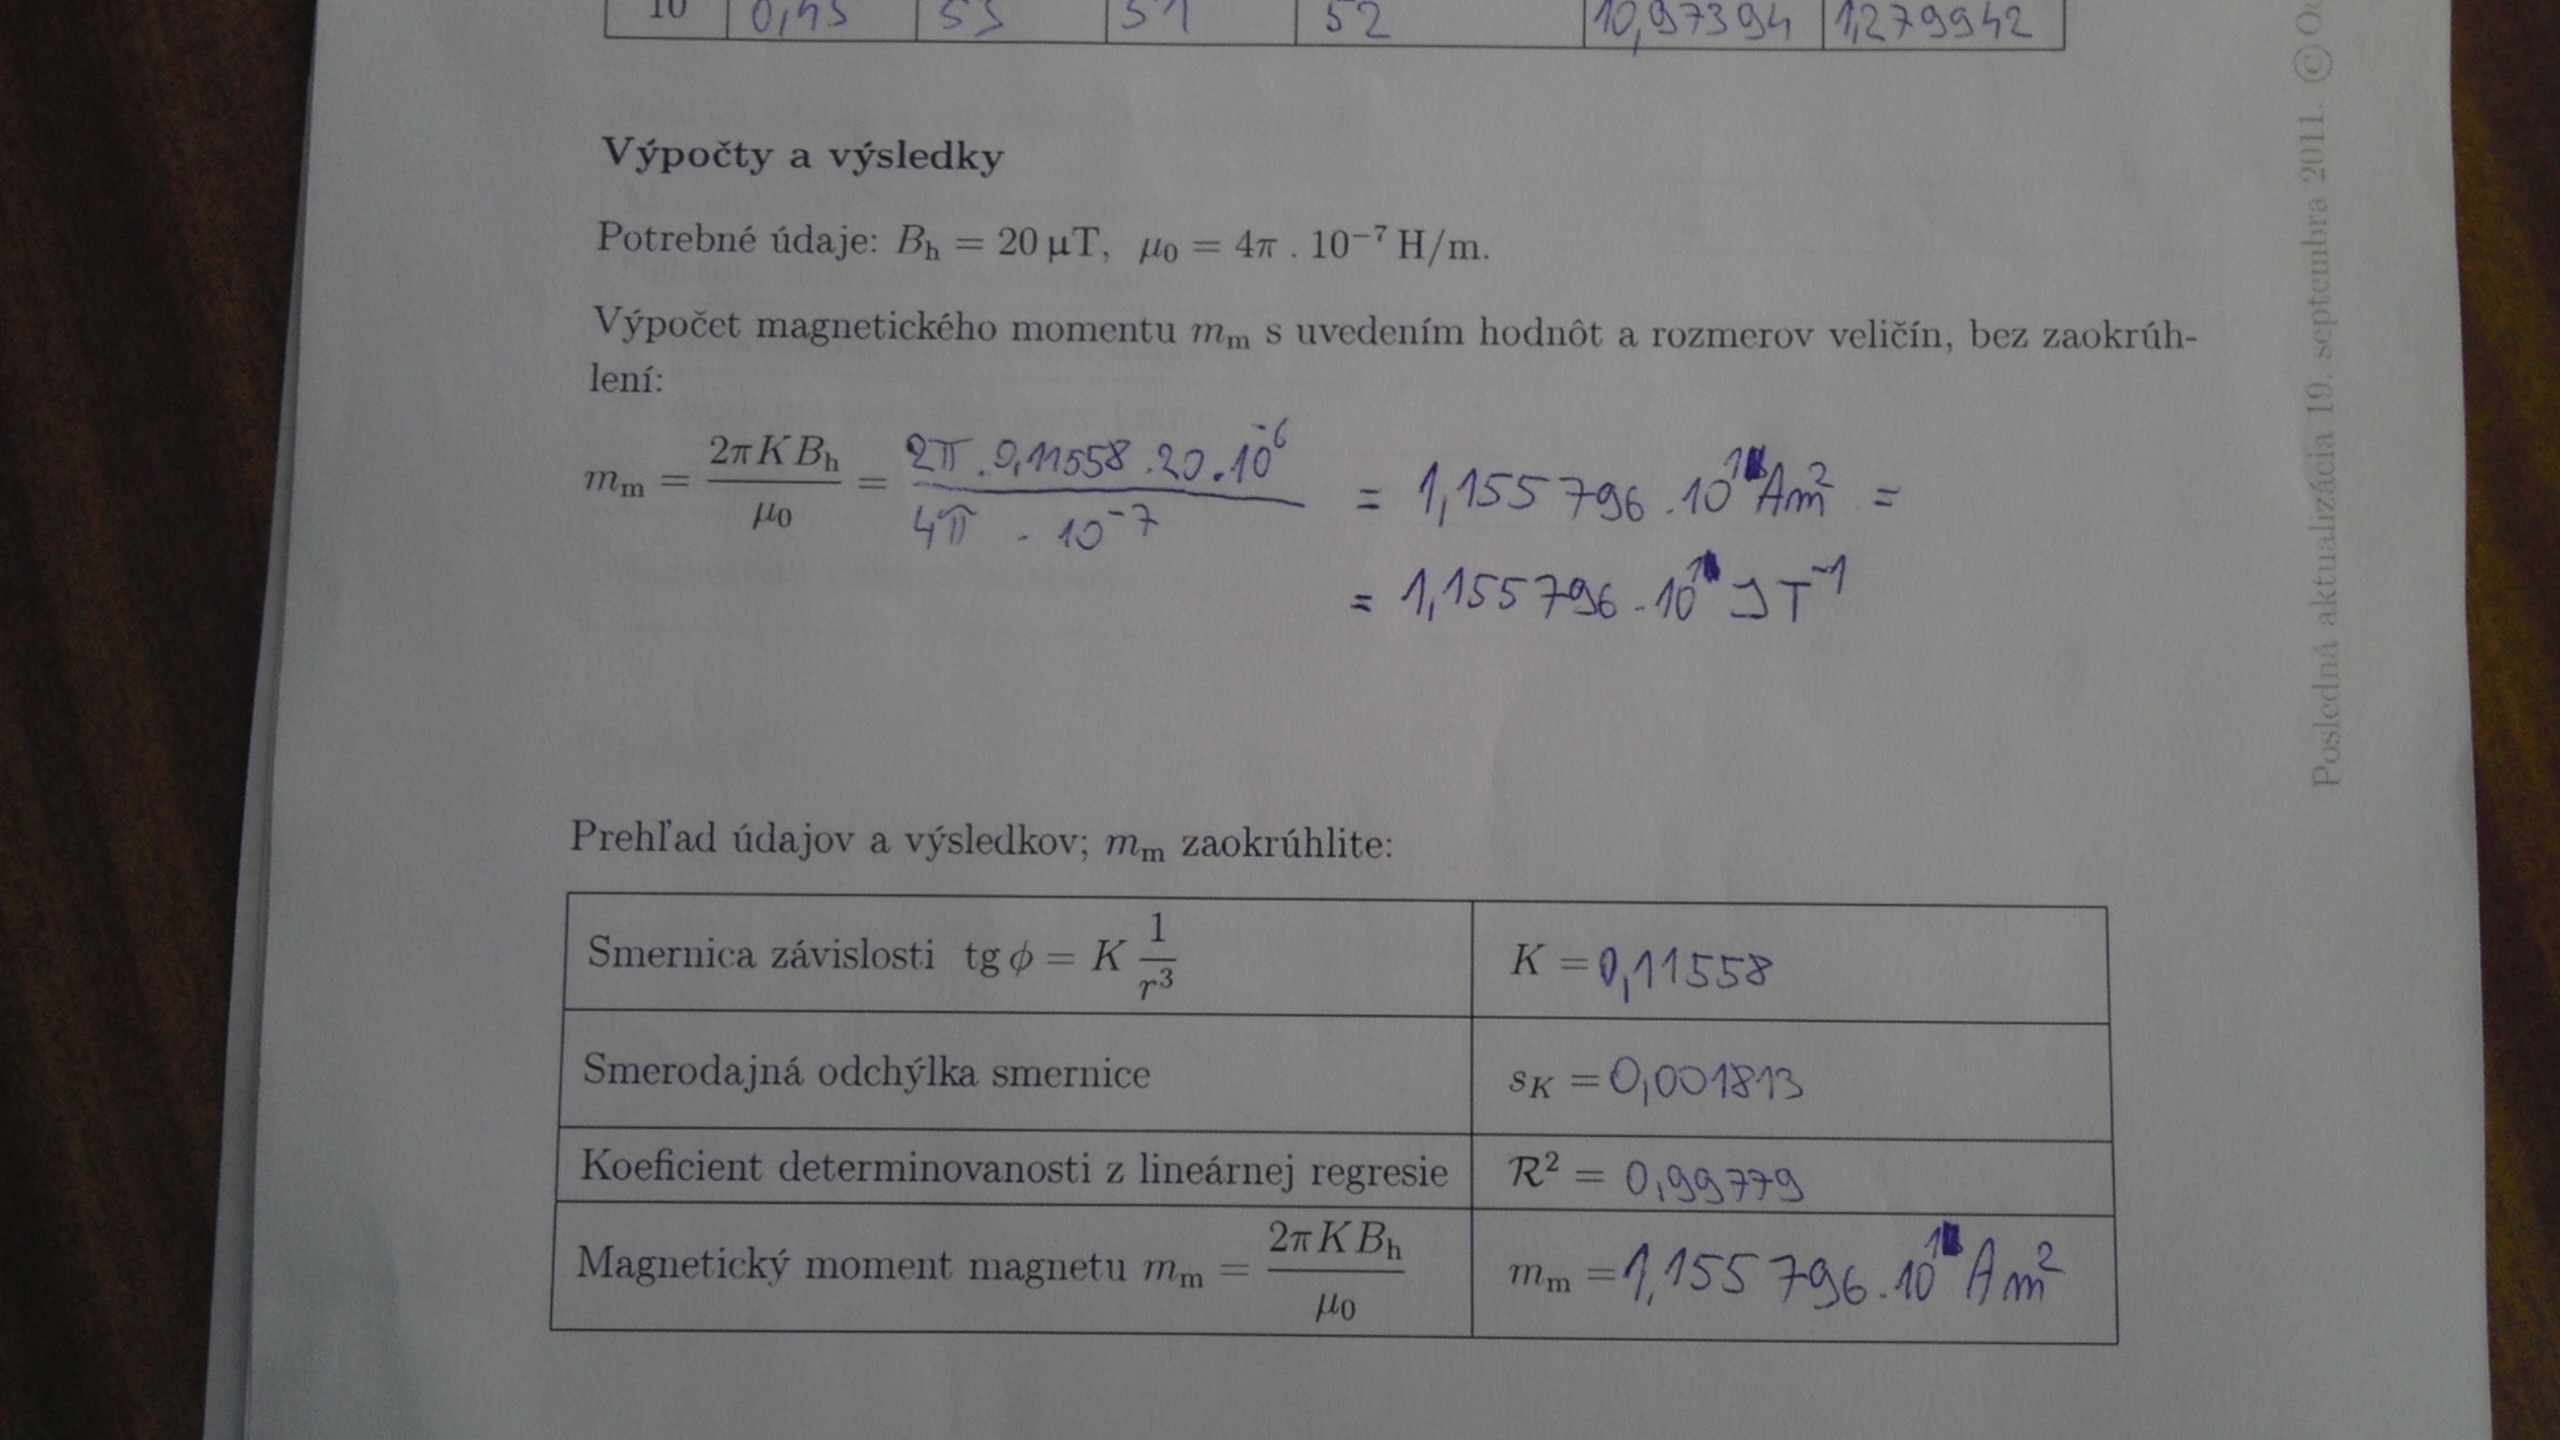 10 0,45 53 51 52 10,97394 1,279942
Výpočty a výsledky
Potrebné údaje: Bh = 20 µT, µ0 = 4π . 10⁻⁷ H/m.
Výpočet magnetického momentu mm s uvedením hodnôt a rozmerov veličín, bez zaokrúh-
lení:
mm = 2πKBh / µ0 = 2π . 0,11558 . 20 . 10⁻⁶ / 4π . 10⁻⁷ = 1,155796 . 10¹ Am² =
= 1,155796 . 10¹ J T⁻¹
Prehľad údajov a výsledkov; mm zaokrúhlite:
Smernica závislosti tg ϕ = K 1/r³ K = 0,11558
Smerodajná odchýlka smernice sK = 0,001813
Koeficient determinovanosti z lineárnej regresie R² = 0,99779
Magnetický moment magnetu mm = 2πKBh / µ0 mm = 1,155796 . 10¹ Am²
Posledná aktualizácia 19. septembra 2011. ©